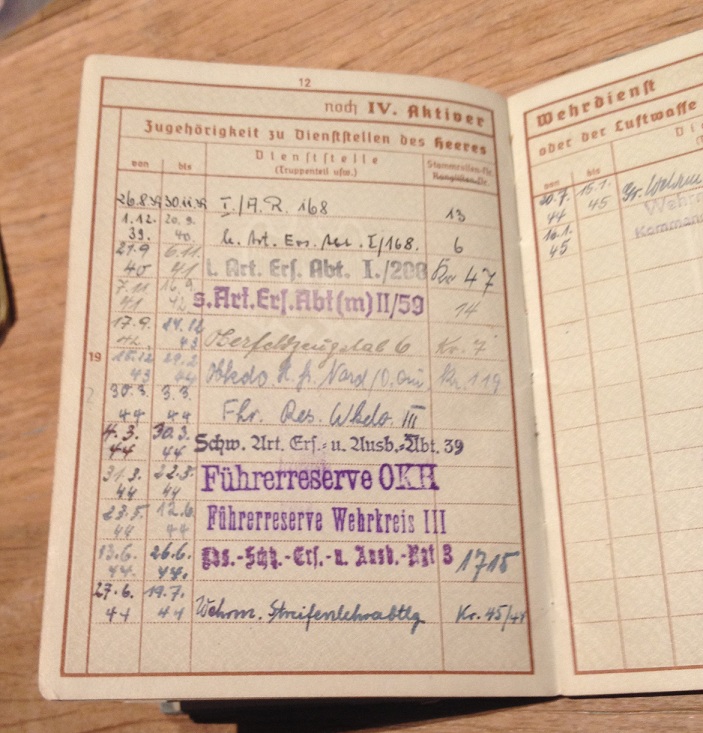 12
noch IV. Aktiver
Zugehörigkeit zu Dienststellen des Heeres
von bis Dienststelle
(Truppenteil usw.)
Stammrollen-Nr.
Ranglisten-Nr.
26.8.39 30.11.39 I./A.R. 168 13
1.12. 39. 20.9. 40. l. Art. Ers. Abt. I/168. 6
21.9 40 6.11. 41 l. Art. Ers. Abt. I./208 Kr 47
7.11 41 16.9. 42 s.Art.Ers.Abt(m) II/59 14
17.9. 42. 43 Oberfeldzeugstab 6 Kr. 7
19
43 44 Nord 119
30.3. 44 3.3. 44 Fhr. Res. Wkdo III
4.3. 44 30.3. 44 Schw. Art. Ers.- u. Ausb.-Abt. 39
31.3. 44 22.5. 44 Führerreserve OKH
23.5. 44 12.6. 44 Führerreserve Wehrkreis III
13.6. 44. 26.6. 44. -Ers.- u. Ausb.- 3 1715
27.6. 44 19.7. 44 Wehrm. Streifenlehrabtlg Kr. 45/44
Wehrdienst
oder der Luftwaffe
von bis
20.7. 44 15.1. 45
16.1. 45